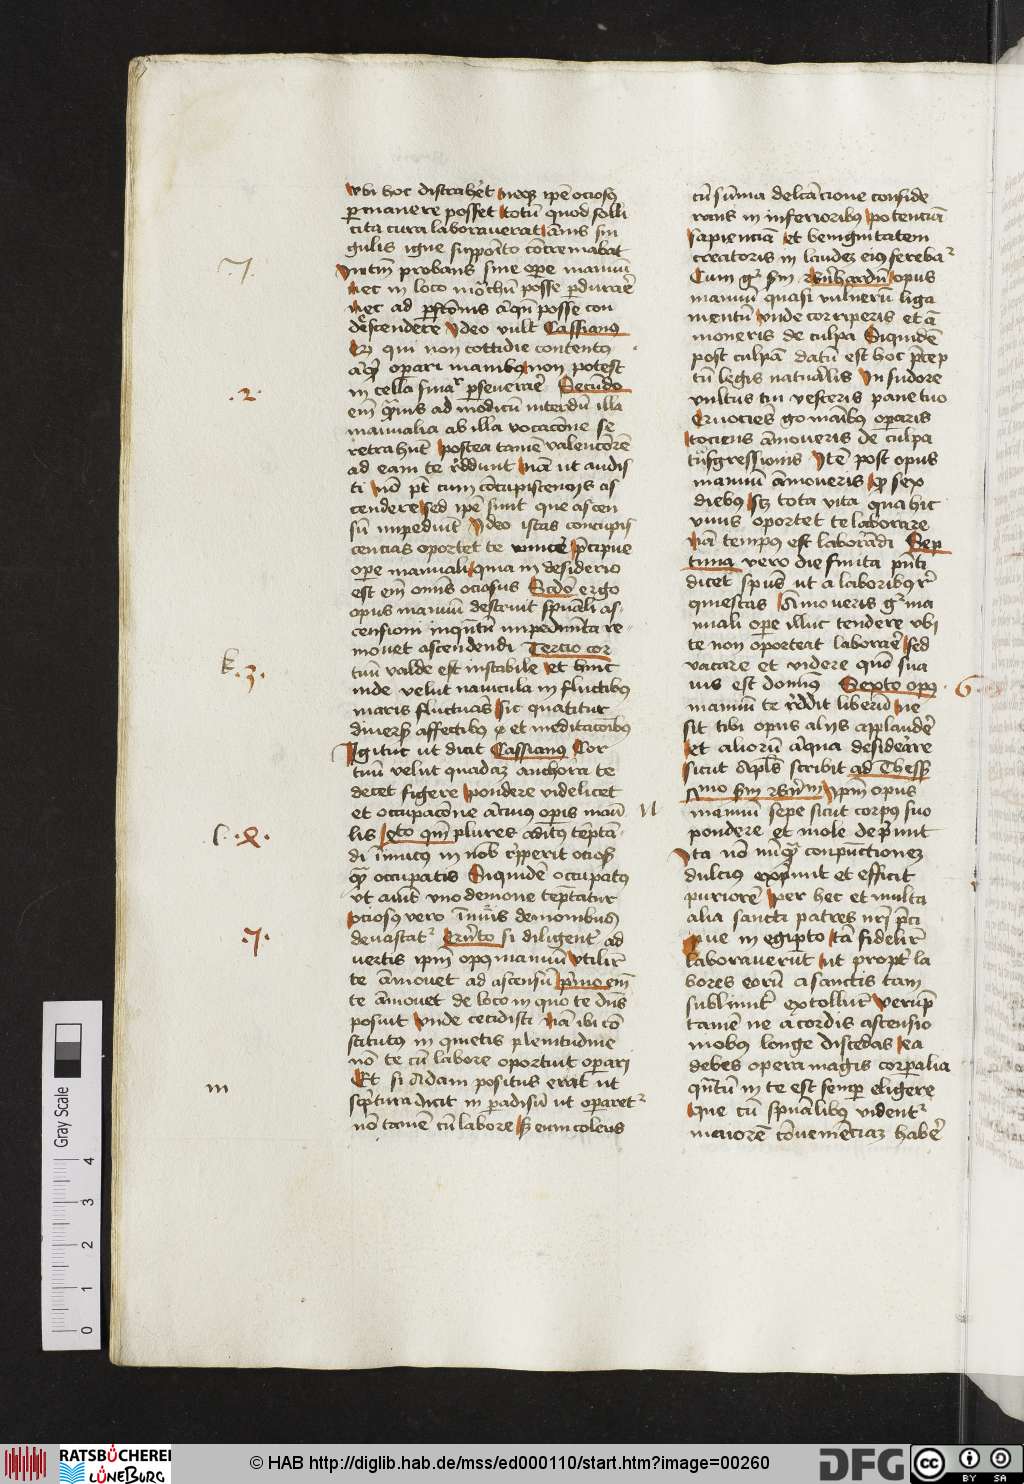 vbi hoc distraheret neque ipse ociosus
permanere posset totum quod solli
cita cura laborauerat annis sin
gulis igne supposito concremabat
probans sine ope manuum
nec in loco monachum posse perdurare
nec ad posse con
scendere Ideo vult Cassianus
qui non cottidie contentus
operari manibus non potest
in cella perseverare Secundo
enim ad modicum interdum illa
manualia ab illa vocacione se
retrahunt postea tamen valenciorem
ad eam te reddunt nam ut audis
ti non potest cum concupiscencijs as
cendere sed ipse sunt que ascen
sum impediunt Ideo istas concupis
cencias oportet te vincere precipue
opere manuali quia in desiderio
est enim omnis ociosus Secundo ergo
opus manuum destruit spiritualis as
censioni inquantum impedimenta re
mouet ascendendi Tercio cor
tuum valde est instabile et hinc
inde velut nauicula in fluctibus
maris fluctuas sic quatitur
diuersis affectibus et meditacionibus
Igitur ut dicit Cassianus Cor
tuum velut quadam anchora te
decet figere pondere videlicet
et occupacione alicuius operis manua
lis Quarto quoniam plures aditus tempta
di inimicus in nobis repperit ociosis
quam occupatis Siquidem occupatus
vt aiunt vno demone temptatur
ociosus vero innumeris demonibus
deuastatur Quinto si diligenter ad
vertis ipsum opus manuum vtiliter
te ammouet ad ascensum primo enim
te ammouet de loco in quo te deus
posuit vnde cecidisti nam ibi con
stitutus in quietis plenitudine
non te cum labore oportuit operari
Et si Adam positus erat ut
scriptura dicit in paradisum ut operaretur
non tamen cum labore sed eum colens
cum summa delectacione conside
rans in inferioribus potenciam
sapienciam et benignitatem
creatoris in laudem eius ferebatur
Cum ergo secundum Bernhardum opus
manuum quasi vulnerum liga
mentum vnde corriperis et am
moneris de culpa Siquidem
post culpam datum est hoc precep
tum legis naturalis In sudore
vultus tui vesceris pane tuo
Quociens ergo manibus operaris
tociens ammoueris de culpa
transgressionis Item post opus
manuum ammoueris quod sex
diebus scilicet tota vita qua hic
viuis oportet te laborare
nam tempus est laborandi Sep
tima vero die finita penitus
dicet spiritus ut a laboribus
quiescas Ammoueris ergo ma
nuali opere illuc tendere vbi
te non oporteat laborare sed
vacare et videre quoniam sua
uis est dominus Sexto opus
manuum te reddit liberum ne
sit tibi opus alijs applaudere
et aliorum aliqua desiderare
sicut Apostolus scribit ad Thess
secundum ipsum opus
manuum sepe sicut corpus suo
pondere et mole deprimit
Ita non numquam conpunctionem
dulcius exprimit et efficit
puriorem per hec et multa
alia sancti patres nostri preci
pue in egipto tam fideliter
laborauerunt ut propter la
bores eorum a sanctis tam
sublimiter extollunt verump
tamen ne a cordis ascensio
nibus longe discedas ea
debes opera magis corporalia
quantum in te est semper eligere
que cum spiritualibus videntur
maiorem conuenienciam habere
.2.
k .3.
l .4.
.7.
m
n
6
Gray Scale
4
3
2
1
0
RATSBÜCHEREI
LÜNEBURG
© HAB http://diglib.hab.de/mss/ed000110/start.htm?image=00260
DFG
cc BY SA